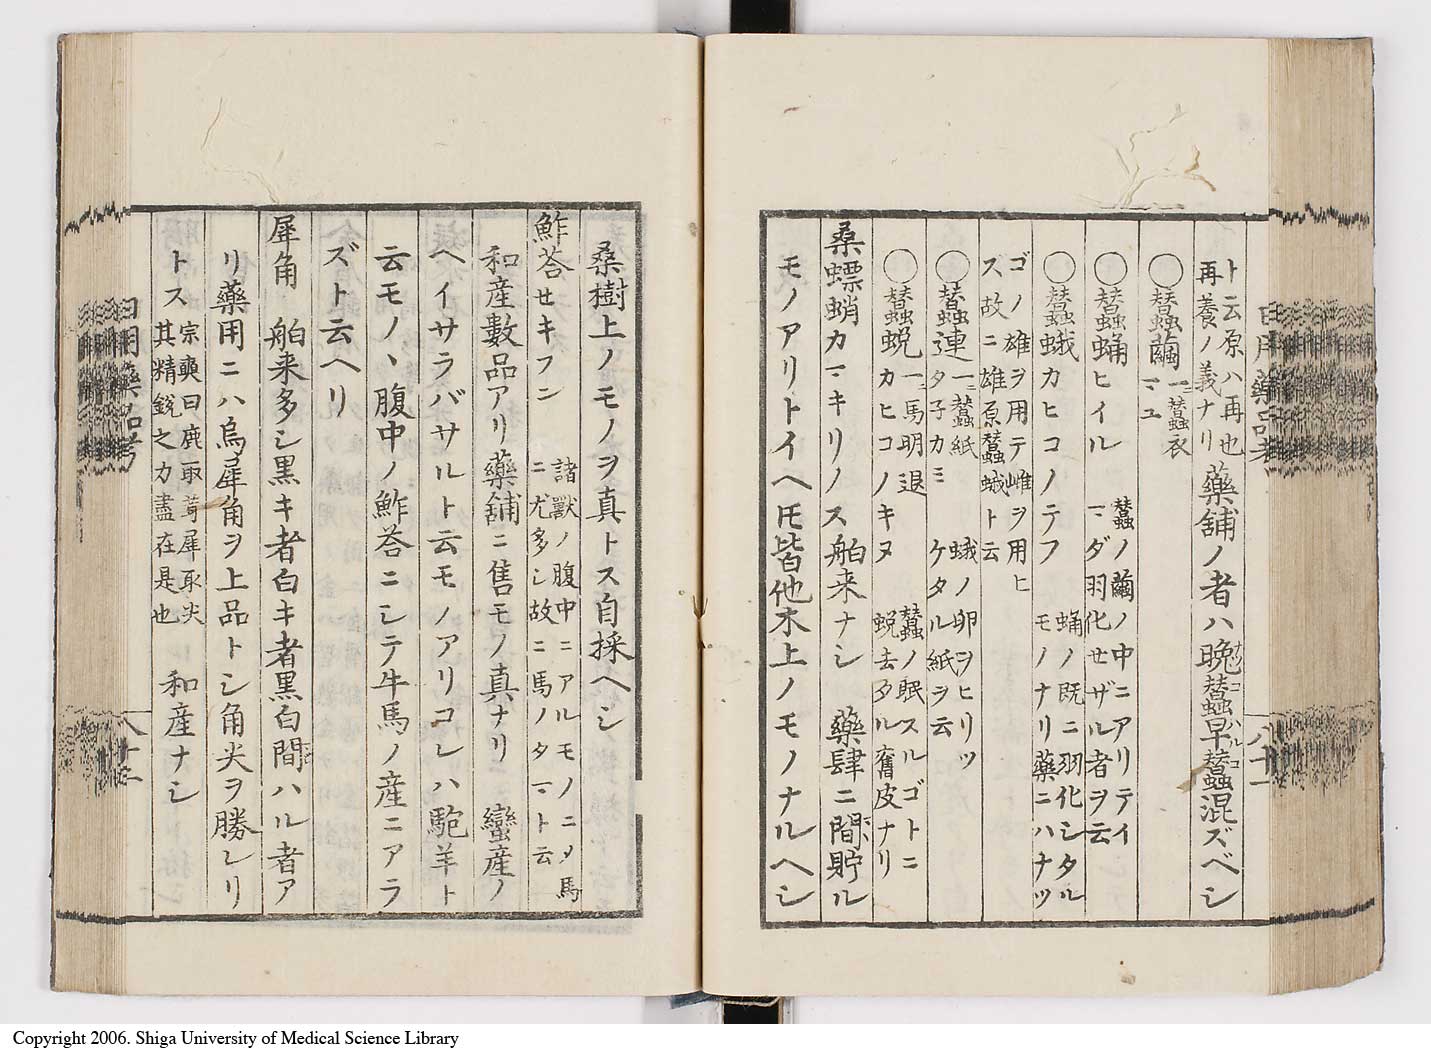 ト云原ハ再也
再養ノ義ナリ
藥舖ノ者ハ晩蠶早蠶混ズベシ
ナツゴ ハルコ
〇蠶繭 一ニ蠶衣
マユ
〇蠶蛹 ヒイル 蠶ノ繭ノ中ニアリテイ
マダ羽化セザル者ヲ云
〇蠶蛾 カヒコノテフ 蛹ノ既ニ羽化シタル
モノナリ藥ニハナツ
ゴノ雄ヲ用テ雌ヲ用ヒ
ス故ニ雄原蠶蛾ト云
〇蠶連 一ニ蠶紙 タ子カミ 蛾ノ卵ヲヒリツ
ケタル紙ヲ云
〇蠶蛻 一ニ馬明退 カヒコノキヌ 蠶ノ眠スルゴトニ
蛻去タル舊皮ナリ
桑螵蛸 カマキリノス 舶来ナシ 藥肆ニ間貯ル
モノアリトイヘ𪜈皆他木上ノモノナルヘシ
日用藥品考
桑樹上ノモノヲ真トス自採ヘシ
鮓荅 せキフン 諸獸ノ腹中ニアルモノニメ馬
ニ尤多シ故ニ馬ノタマト云
和産數品アリ藥舖ニ售モノ真ナリ 蠻産ノ
ヘイサラバサルト云モノアリコレハ駞羊ト
云モノヽ腹中ノ鮓荅ニシテ牛馬ノ産ニアラ
ズト云ヘリ
犀角 舶来多シ黒キ者白キ者黒白間ハル者ア
リ藥用ニハ烏犀角ヲ上品トシ角尖ヲ勝レリ
トス 宗奭曰鹿取茸犀取尖
其精鋭之力盡在是也
和産ナシ
日用藥品考
八十二
Copyright 2006. Shiga University of Medical Science Library